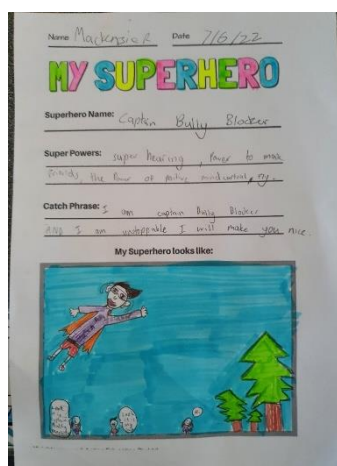 Name Mackenzie R Date 7/6/22
MY SUPERHERO
Superhero Name: Captin Bully Blocker
Super Powers: super hearing, Power to make
friends, the Power of positive mind control,
Catch Phrase: I am captin Bully Blocker
AND I am unstoppable I will make you nice.
My Superhero looks like: